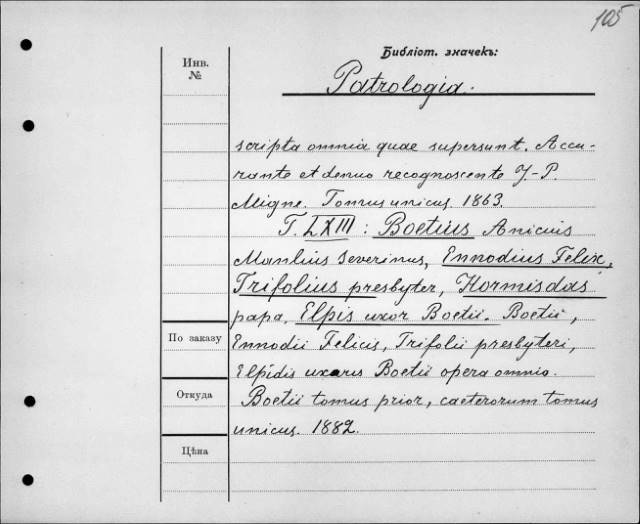 105
Библіот. значекъ:
Инв.
№
Patrologia.
scripta omnia quae supersunt. Accu-
rante et denuo recognoscente J-P.
Migne. Tomus unicus. 1863.
T. LXIII : Boetius Anicius
Manlius Severinus, Ennodius Felix,
Trifolius presbyter, Hormisdas
papa, Elpis uxor Boetii. Boetii,
По заказу
Ennodii Felicis, Trifolii presbyteri,
Elpidis uxoris Boetii opera omnia.
Откуда
Boetii tomus prior, caeterorum tomus
unicus. 1882.
Цѣна